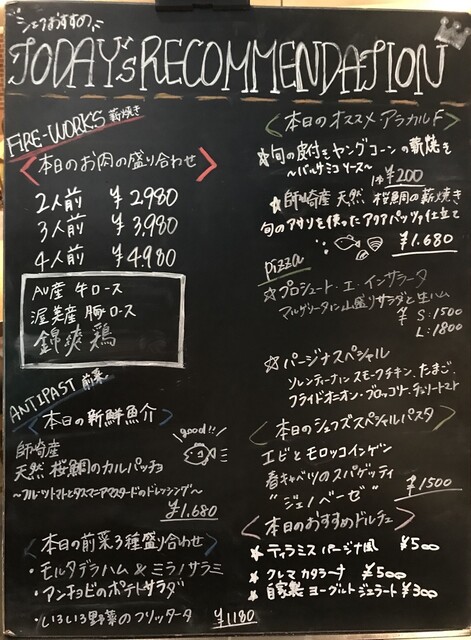 シェフおすすめ
TODAY'S RECOMMENDATION
FIRE-WORKS 薪焼き
本日のお肉の盛り合わせ
2人前 ¥2980
3人前 ¥3,980
4人前 ¥4,980
AU産 牛ロース
渥美産 豚ロース
錦爽鶏
ANTIPAST 前菜
本日の新鮮魚介
good!!
師崎産
天然 桜鯛のカルパッチョ
〜フルーツトマトとタスマニアマスタードのドレッシング〜
¥1.680
本日の前菜3種盛り合わせ
・モルタデラハム & ミラノサラミ
・アンチョビのポテトサラダ
・いろいろ野菜のフリッタータ ¥1180
本日のオススメアラカルト
☆旬の皮付きヤングコーンの薪焼き
〜バルサミコソース〜
1本 ¥200
☆師崎産 天然 桜鯛の薪焼き
旬のアサリを使ったアクアパッツァ仕立て
¥1.680
pizza
☆プロシュート・エ・インサラータ
マルゲリータに山盛りサラダと生ハム
¥ S:1500
L:1800
☆パージナスペシャル
ソレンティーナハム スモークチキン、たまご、
フライドオニオン・ブロッコリー・ドライトマト
本日のシェフズスペシャルパスタ
エビとモロッコインゲン
春キャベツのスパゲッティ
"ジェノベーゼ" ¥1500
本日のおすすめドルチェ
★ティラミス パージナ風 ¥500
★クレマカタラーナ ¥500
★自家製 ヨーグルトジェラート ¥300